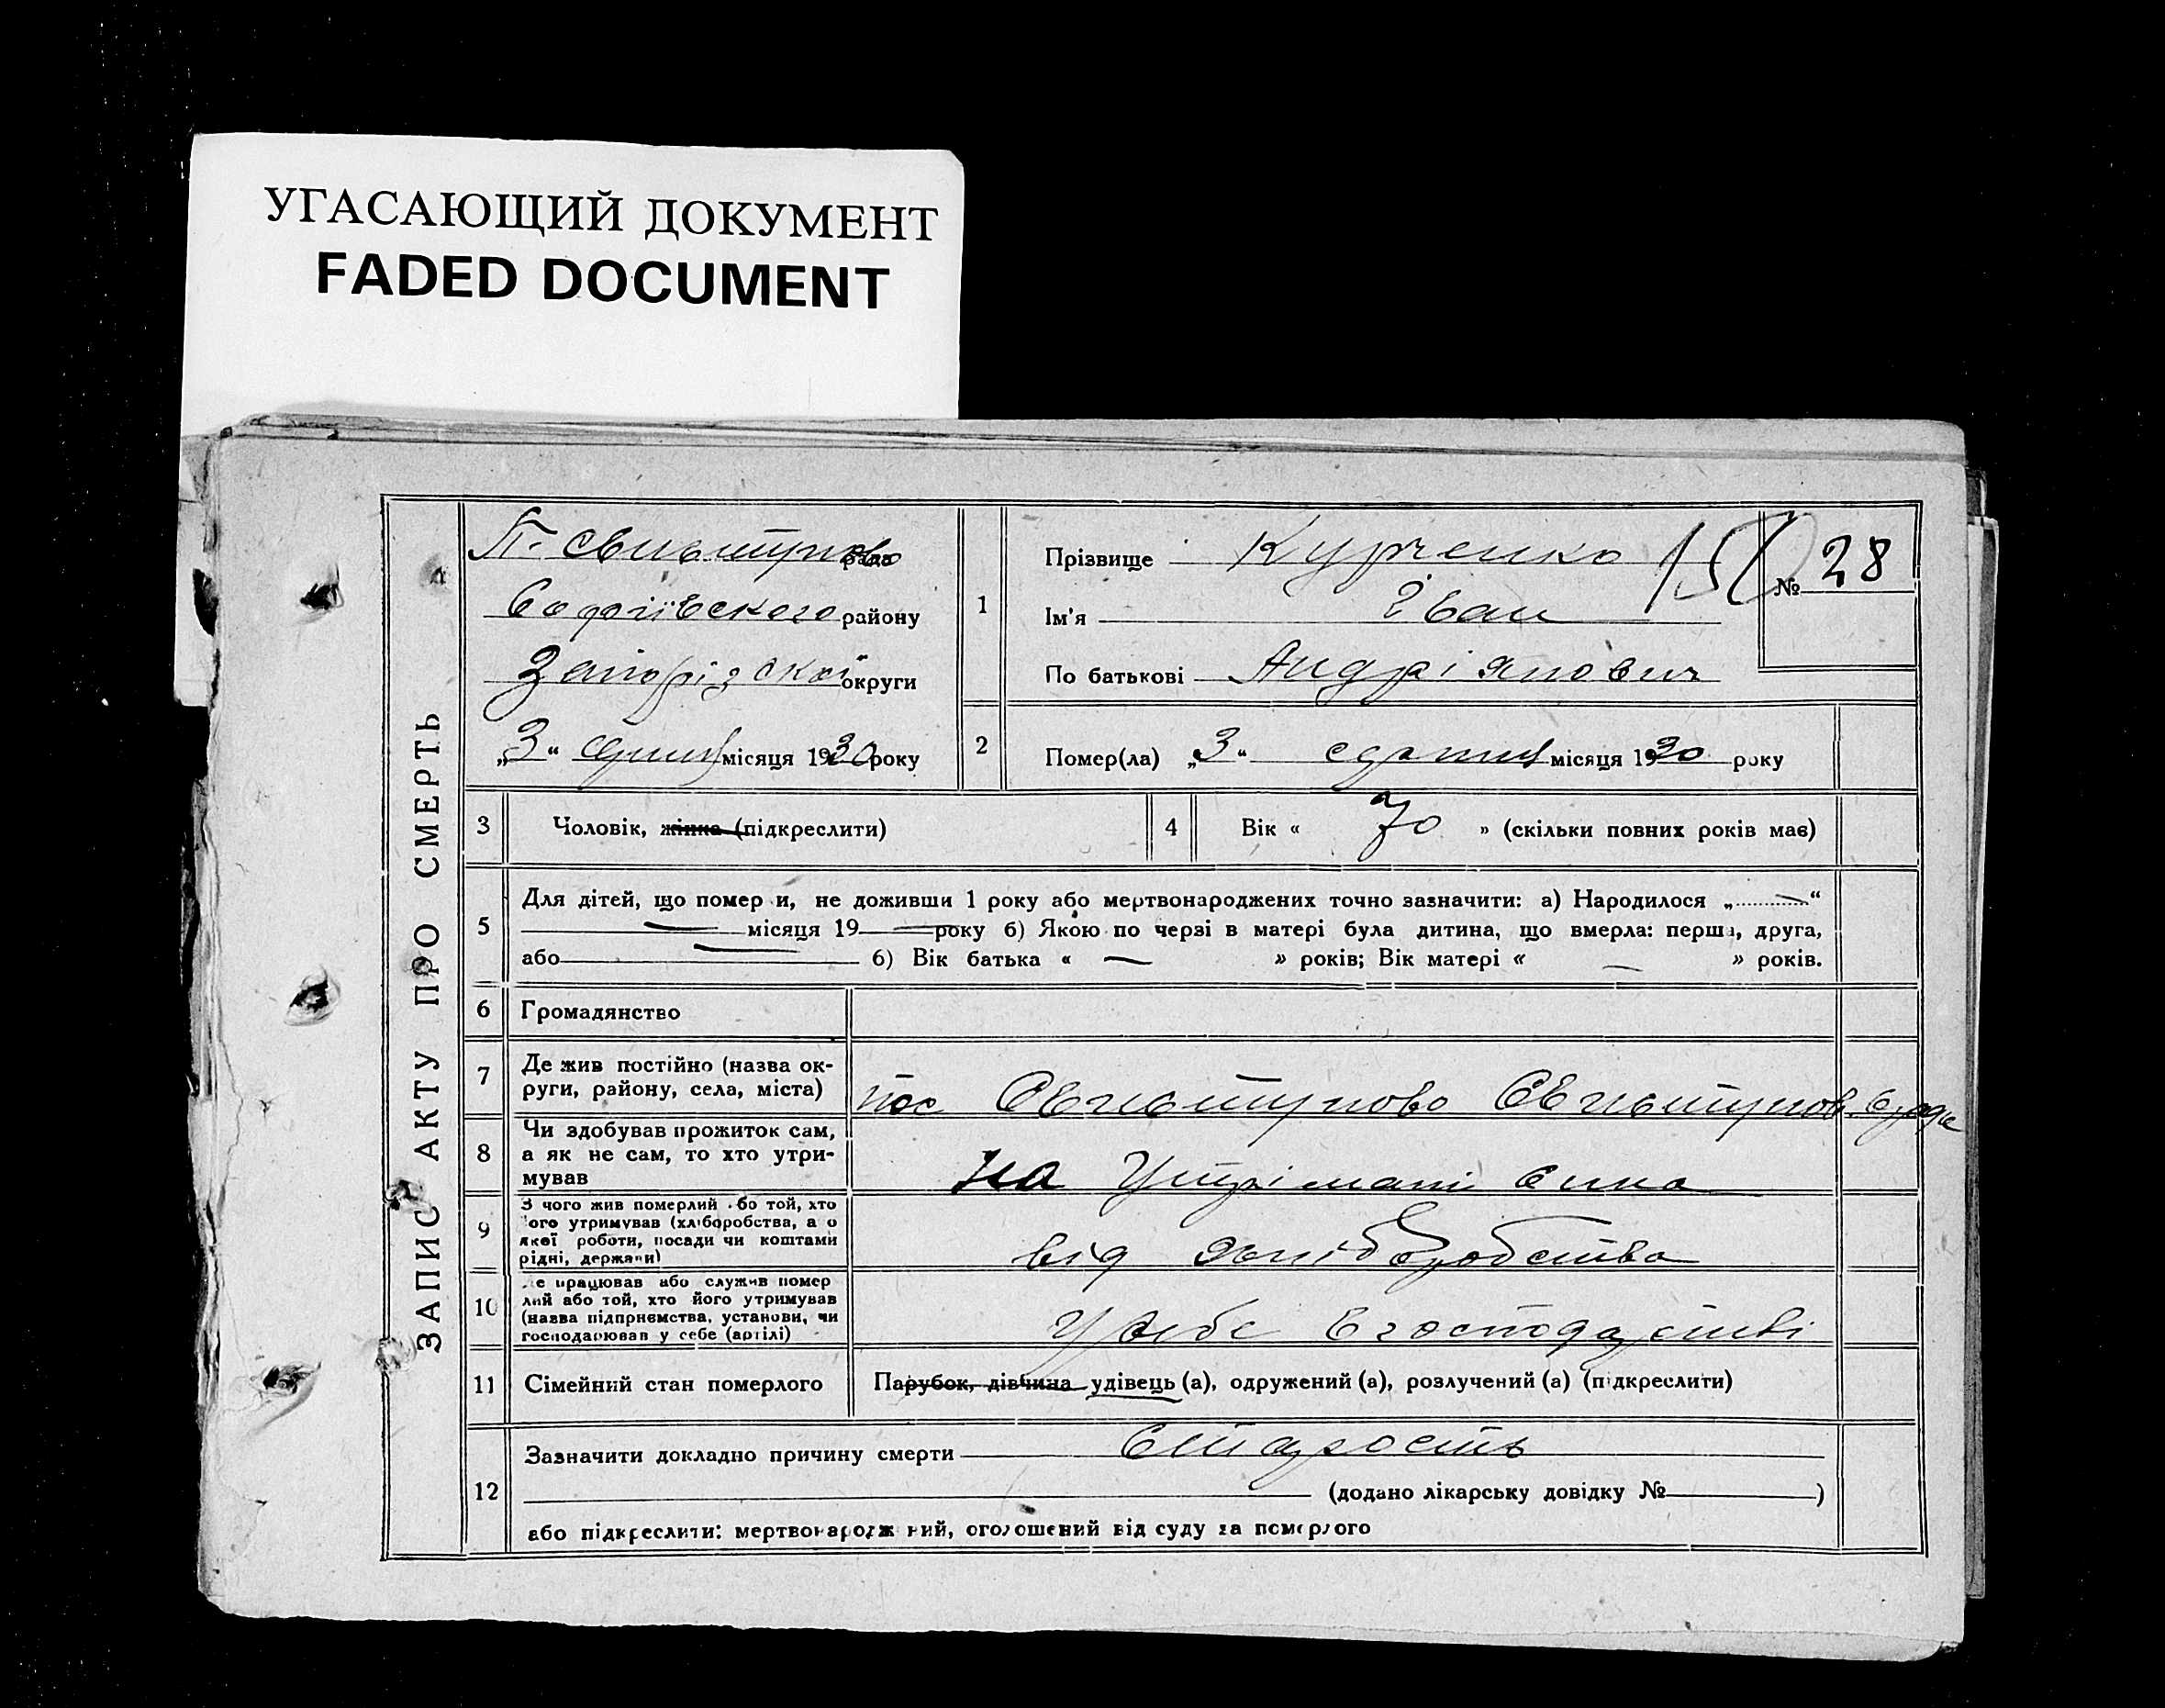 УГАСАЮЩИЙ ДОКУМЕНТ
FADED DOCUMENT
ЗАПИС АКТУ ПРО СМЕРТЬ
П. Свистуново
Софіївского району
Запорізской округи
„3“ січня місяця 1930 року
1
Прізвище Курченко
Ім'я Іван
По батькові Андріянович
150
№ 28
2 Помер(ла) „3“ січня місяця 1930 року
3 Чоловік, жінка (підкреслити)
4 Вік « 70 » (скільки повних років має)
5
Для дітей, що помер и, не доживши 1 року або мертвонароджених точно зазначити: а) Народилося „ — “
— місяця 19 — року б) Якою по черзі в матері була дитина, що вмерла: перша, друга,
або — б) Вік батька « — » років; Вік матері « — » років.
6 Громадянство
7 Де жив постійно (назва ок-
руги, району, села, міста)
пос Свистуново Свистунов.
8 Чи здобував прожиток сам,
а як не сам, то хто утри-
мував
на Утрімані сина
9 З чого жив померлий бо той, хто
ого утримував (хліборобства, а о
якої роботи, посади чи коштами
рідні, держави)
від хліборобства
10 е працював або служив помер
лий або той, хто його утримував
(назва підприємства, установи, чи
господарював у себе (артілі)
У себе в господарстві
11 Сімейний стан померлого
Парубок, дівчина удівець (а), одружений (а), розлучений (а) (підкреслити)
12
Зазначити докладно причину смерти Старость
(додано лікарську довідку № )
або підкреслити: мертвонародж ний, оголошений від суду за померлого